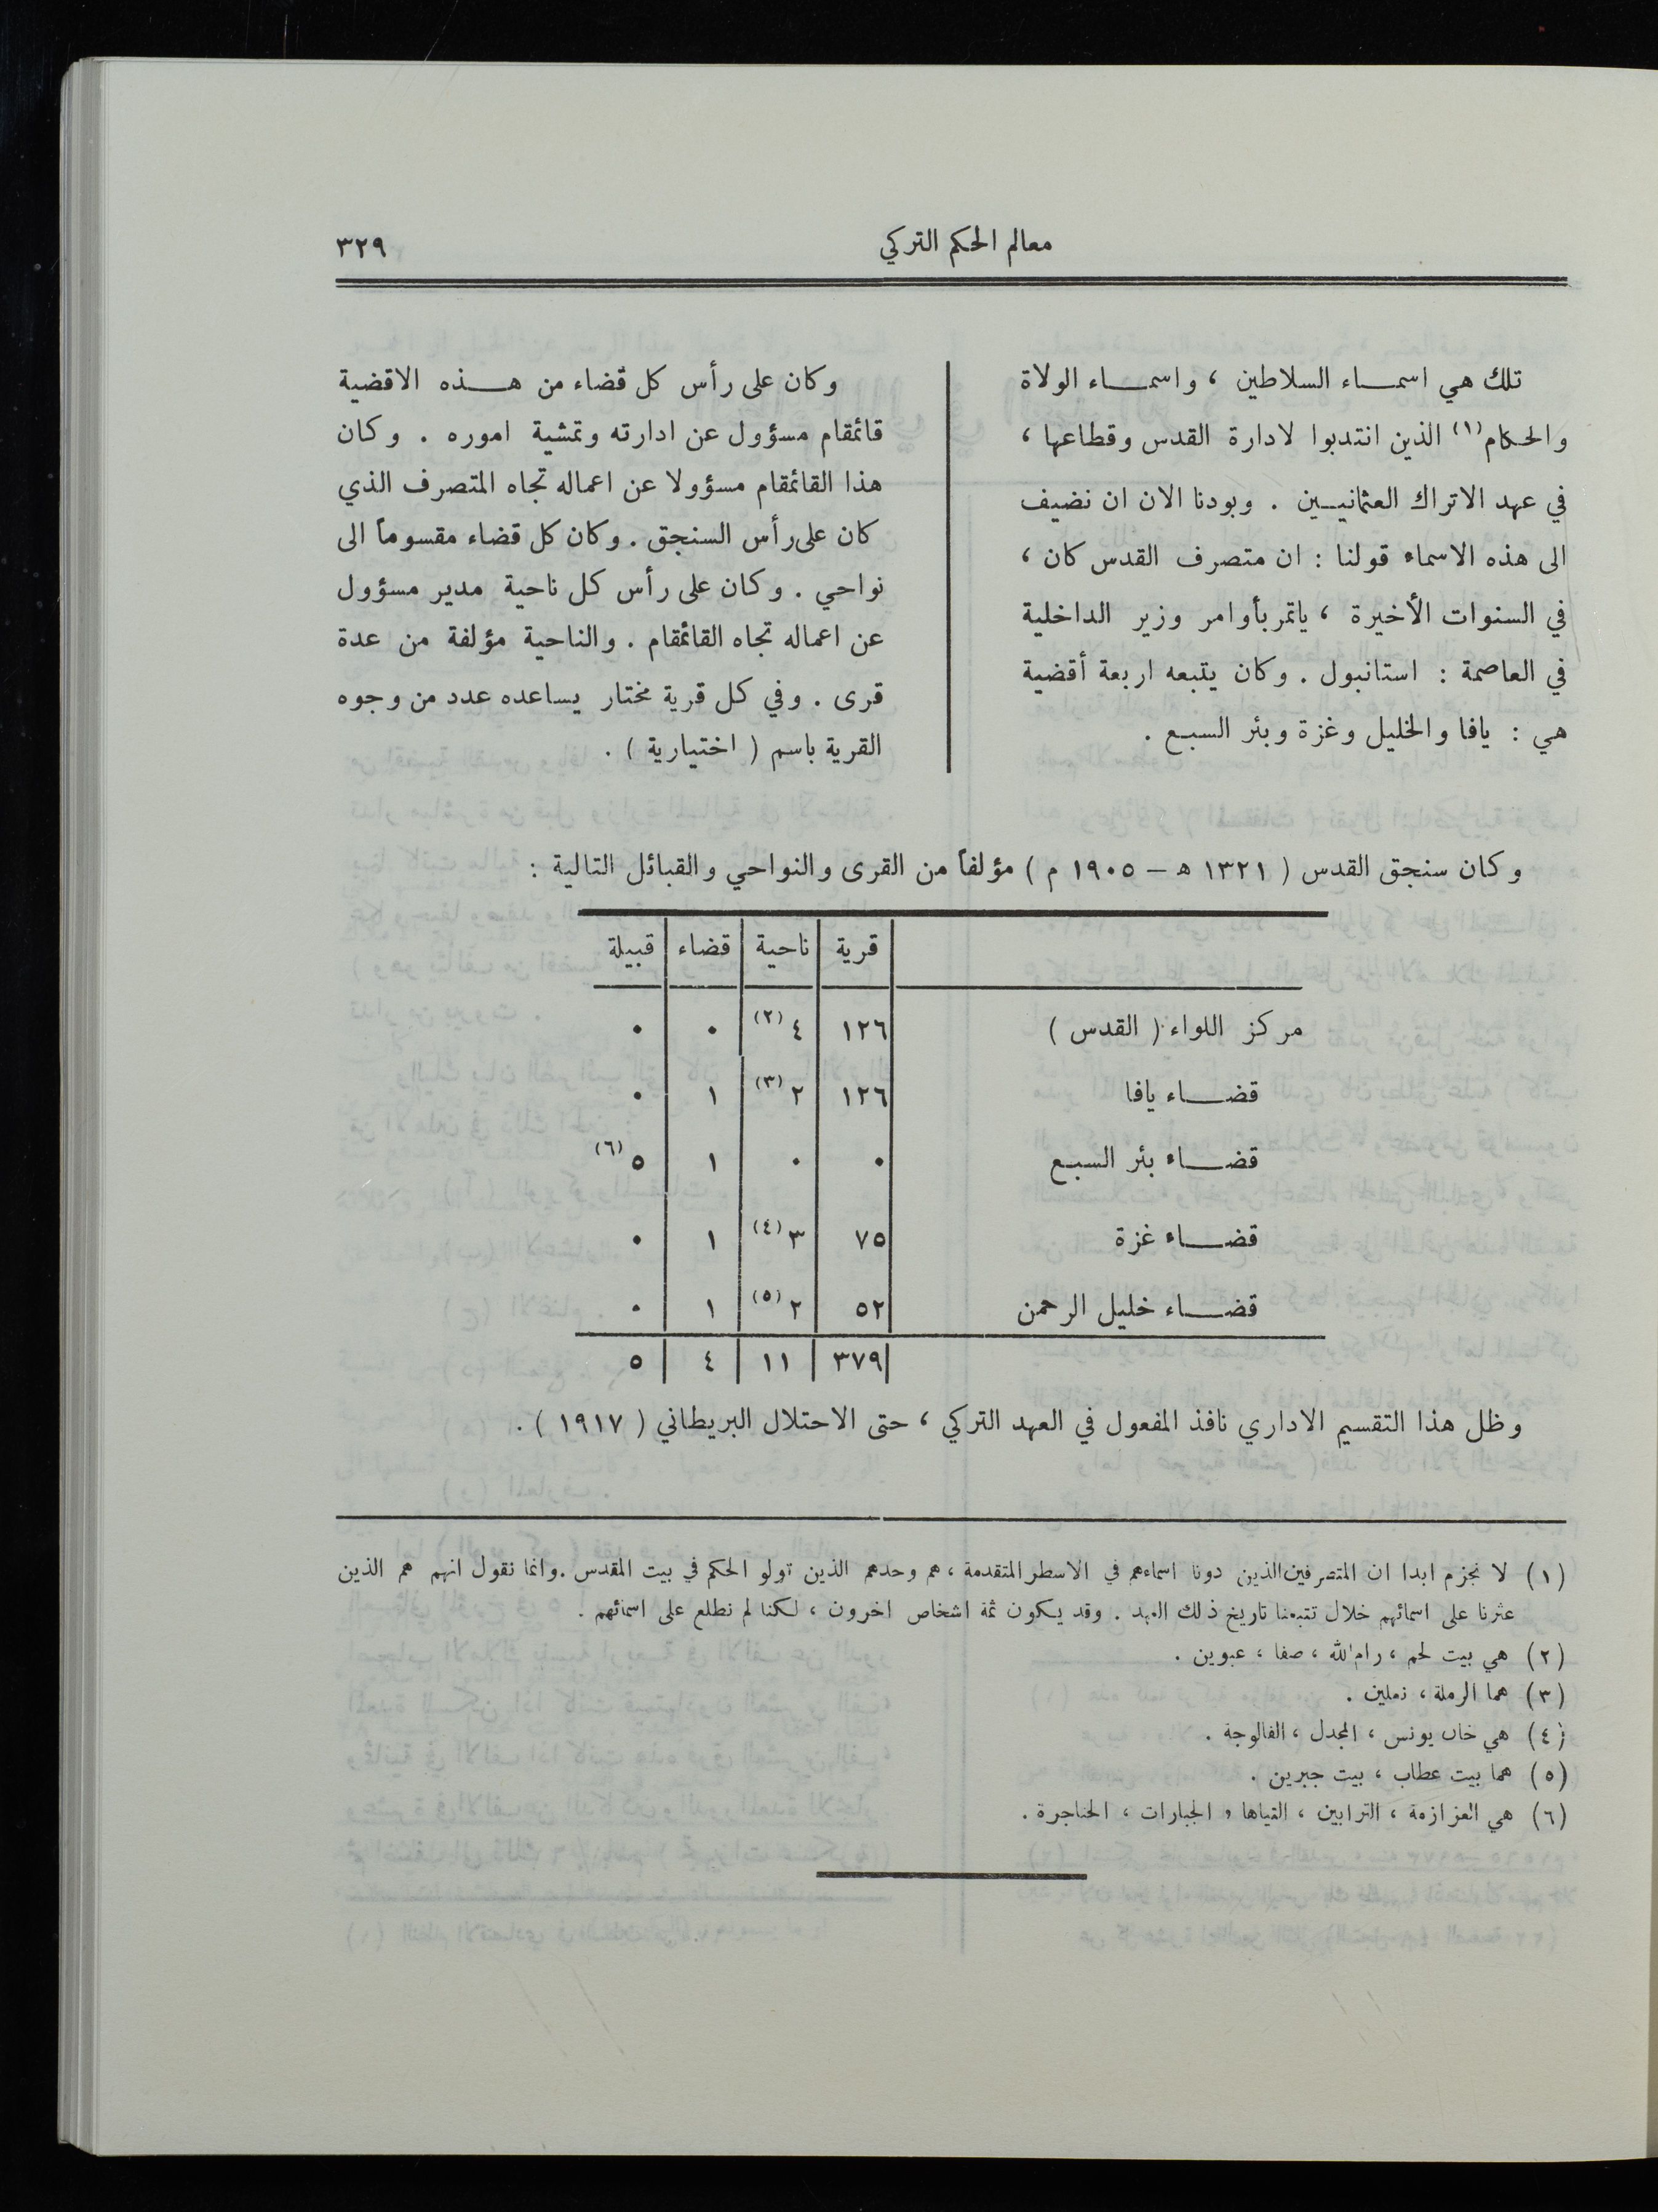 معالم الحكم التركي
٣٢٩
تلك هي اسماء السلاطين ، واسماء الولاة
والحكام(١) الذين انتدبوا لادارة القدس وقطاعها ،
في عهد الاتراك العثمانيين . وبودنا الان ان نضيف
الى هذه الاسماء قولنا : ان متصرف القدس كان ،
في السنوات الأخيرة ، ياتمر بأوامر وزير الداخلية
في العاصمة : استانبول . وكان يتبعه اربعة أقضية
هي : يافا والخليل وغزة وبئر السبع .
وكان على رأس كل قضاء من هذه الاقضية
قائمقام مسؤول عن ادارته وتمشية اموره . وكان
هذا القائمقام مسؤولا عن اعماله تجاه المتصرف الذي
كان على رأس السنجق . وكان كل قضاء مقسوماً الى
نواحي . وكان على رأس كل ناحية مدير مسؤول
عن اعماله تجاه القائمقام . والناحية مؤلفة من عدة
قرى . وفي كل قرية مختار يساعده عدد من وجوه
القرية باسم ( اختيارية ) .
وكان سنجق القدس ( ١٣٢١ ھ – ١٩٠٥ م ) مؤلفاً من القرى والنواحي والقبائل التالية :
قرية ناحية قضاء قبيلة
مركز اللواء ( القدس ) ١٢٦ ٤(٢) ٠ ٠
قضاء يافا ١٢٦ ٢(٣) ١ ٠
قضاء بئر السبع ٠ ٠ ١ ٥(٦)
قضاء غزة ٧٥ ٣(٤) ١ ٠
قضاء خليل الرحمن ٥٢ ٢(٥) ١ ٠
٣٧٩ ١١ ٤ ٥
وظل هذا التقسيم الاداري نافذ المفعول في العهد التركي ، حتى الاحتلال البريطاني ( ١٩١٧ ) .
(١) لا نجزم ابدا ان المتصرفين الذين دونا اسماءهم في الاسطر المتقدمة ، هم وحدهم الذين تولو الحكم في بيت المقدس . وانما نقول انهم هم الذين
عثرنا على اسمائهم خلال تتبعنا تاريخ ذلك العهد . وقد يكون ثمة اشخاص اخرون ، لكنا لم نطلع على اسمائهم .
(٢) هي بيت لحم ، رام الله ، صفا ، عبوين .
(٣) هما الرملة ، نعلين .
(٤) هي خان يونس ، المجدل ، الفالوجة .
(٥) هما بيت عطاب ، بيت جبرين .
(٦) هي العزازمة ، الترابين ، التياها ، الجبارات ، الحناجرة .